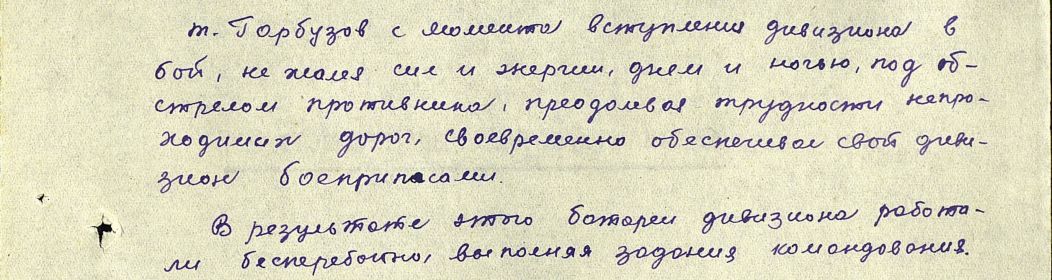 т. Горбузов с момента вступления дивизиона в
бой, не жалея сил и энергии, днем и ночью, под об-
стрелом противника, преодолевая трудности непро-
ходимых дорог, своевременно обеспечивал свой диви-
зион боеприпасами.
В результате этого батареи дивизиона работа-
ли бесперебойно, выполняя задания командования.